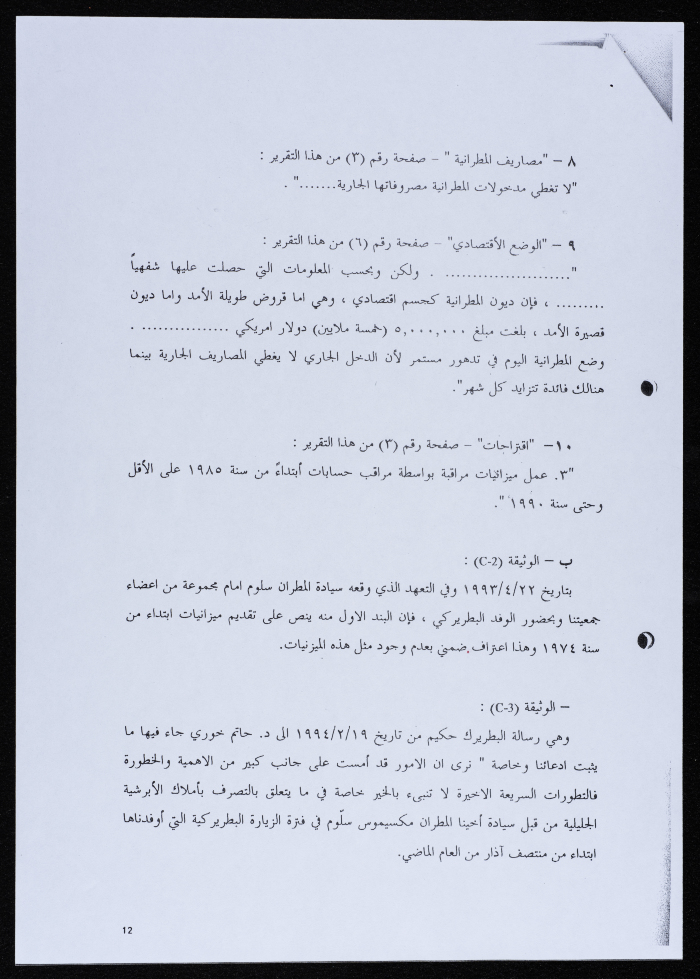 ٨ – "مصاريف المطرانية " – صفحة رقم (٣) من هذا التقرير :
"لا تغطي مدخولات المطرانية مصروفاتها الجارية......." .
٩ – "الوضع الأقتصادي" – صفحة رقم (٦) من هذا التقرير :
"....................... . ولكن وبحسب المعلومات التي حصلت عليها شفهياً
......... ، فإن ديون المطرانية كجسم اقتصادي ، وهي اما قروض طويلة الأمد واما ديون
قصيرة الأمد ، بلغت مبلغ ٥,٠٠٠,٠٠٠ (خمسة ملايين) دولار امريكي ................ .
وضع المطرانية اليوم في تدهور مستمر لأن الدخل الجاري لا يغطي المصاريف الجارية بينما
هنالك فائدة تتزايد كل شهر".
١٠– "اقتراحات" – صفحة رقم (٣) من هذا التقرير :
"٣. عمل ميزانيات مراقبة بواسطة مراقب حسابات أبتداءً من سنة ١٩٨٥ على الأقل
وحتى سنة ١٩٩٠ ".
ب – الوثيقة (C-2) :
بتاريخ ١٩٩٣/٤/٢٢ وفي التعهد الذي وقعه سيادة المطران سلوم امام مجموعة من اعضاء
جمعيتنا وبحضور الوفد البطريركي ، فإن البند الاول منه ينص على تقديم ميزانيات ابتداء من
سنة ١٩٧٤ وهذا اعتراف ضمني بعدم وجود مثل هذه الميزنيات.
– الوثيقة (C-3) :
وهي رسالة البطريرك حكيم من تاريخ ١٩٩٤/٢/١٩ الى د. حاتم خوري جاء فيها ما
يثبت ادعائنا وخاصة " نرى ان الامور قد أمست على جانب كبير من الاهمية والخطورة
فالتطورات السريعة الاخيرة لا تنبىء بالخير خاصة في ما يتعلق بالتصرف بأملاك الأبرشية
الجليلية من قبل سيادة أخينا المطران مكسيموس سلّوم في فترة الزيارة البطريركية التي أوفدناها
ابتداء من منتصف آذار من العام الماضي.
12